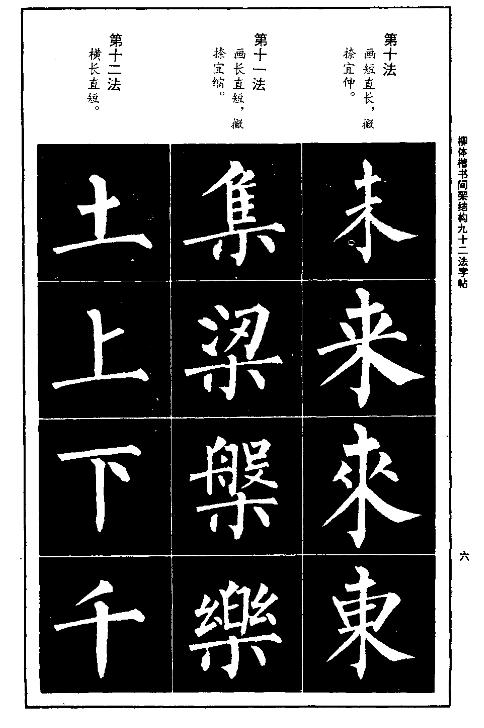 柳体楷书间架结构九十二法字帖
六
第十法
画短直长，撇
捺宜伸。
未来來東
第十一法
画长直短，撇
捺宜缩。
集梁槃樂
第十二法
横长直短。
土上下千